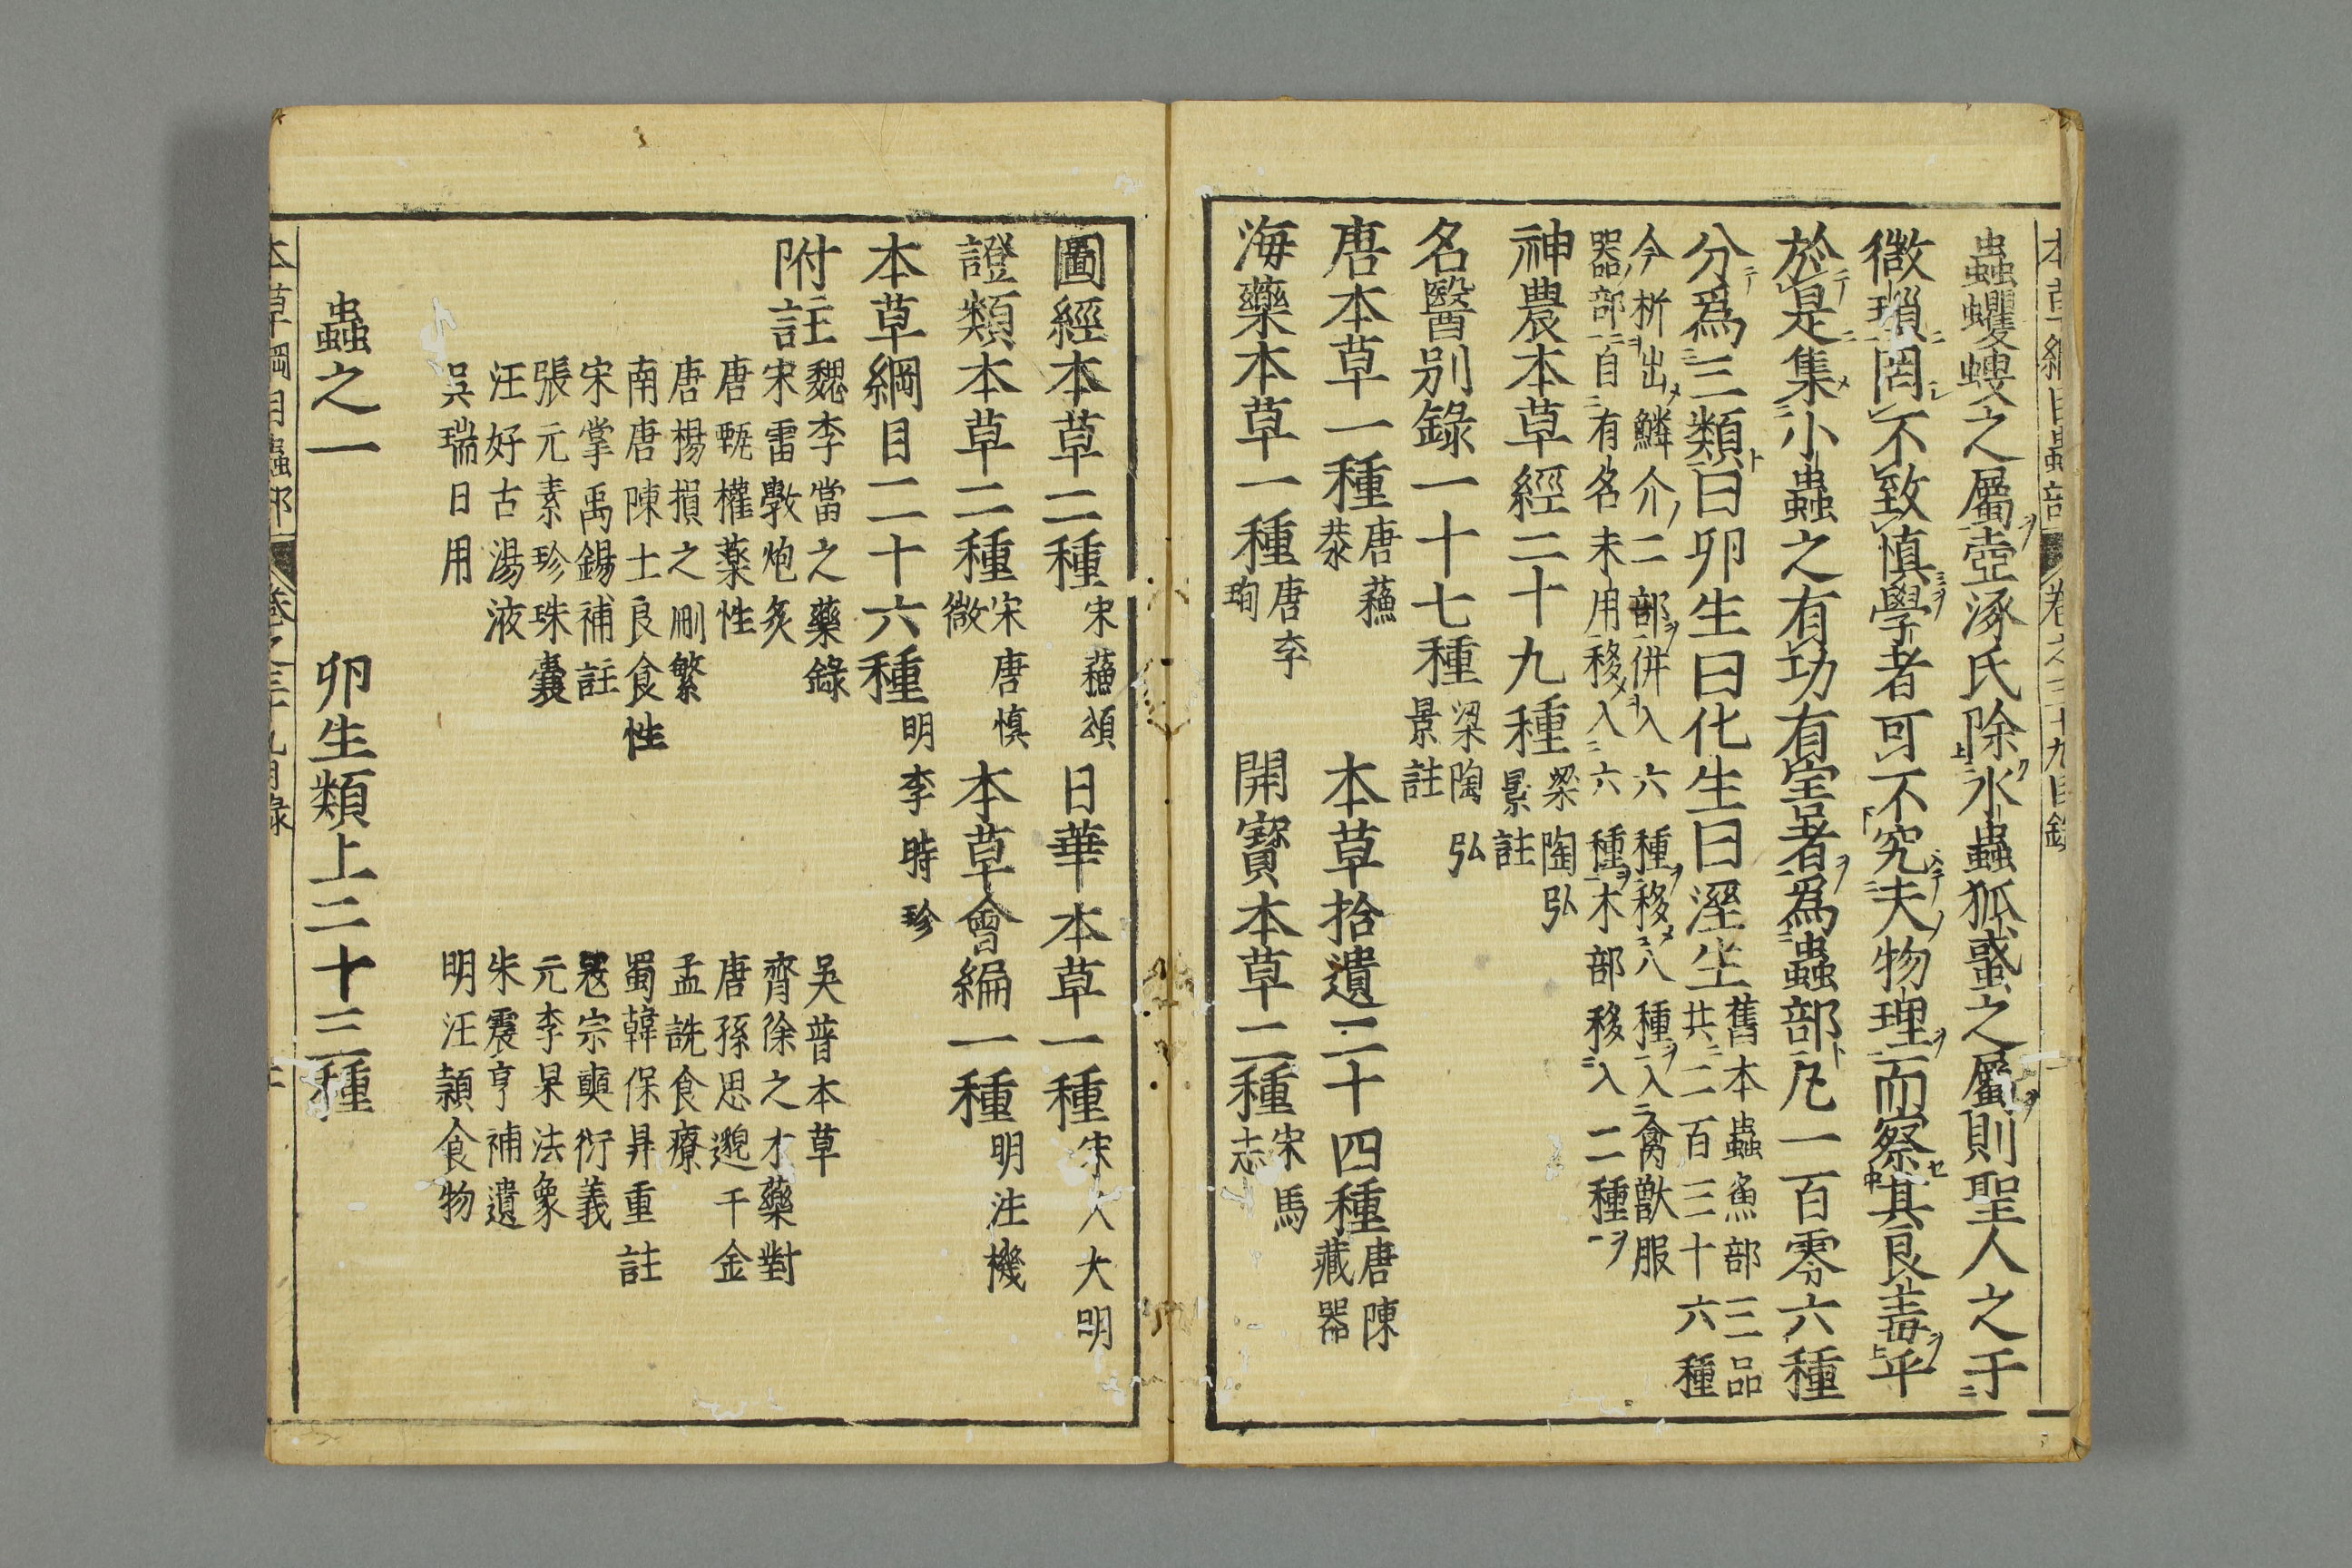 本草綱目蟲部 卷之三十九目錄
蟲蠼螋之屬壺涿氏除水蟲狐蜮之屬則聖人之于
微瑣罔不致慎學者可不究夫物理而察其良毒乎
於是集小蟲之有功有害者爲蟲部凡一百零六種
分爲三類曰卵生曰化生曰溼生
舊本蟲魚部三品
共二百三十六種
今析出鱗介二部併入六種移八種入禽獸服
器部自有名未用移入六種木部移入二種
神農本草經二十九種
梁陶弘
景註
名醫別錄一十七種
梁陶弘
景註
唐本草一種
唐蘓
恭
本草拾遺二十四種
唐陳
藏器
海藥本草一種
唐李
珣
開寶本草二種
宋馬
志
圖經本草二種
宋蘓頌
日華本草一種
宋人大明
證類本草二種
宋唐慎
微
本草會編一種
明汪機
本草綱目二十六種
明李時珍
附註
魏李當之藥錄
吳普本草
宋雷斆炮炙
齊徐之才藥對
唐甄權藥性
唐孫思邈千金
唐楊損之刪繁
孟詵食療
南唐陳士良食性
蜀韓保昇重註
宋掌禹錫補註
宼宗奭衍義
張元素珍珠囊
元李杲法象
汪好古湯液
朱震亨補遺
吳瑞日用
明汪潁食物
蟲之一 卵生類上二十三種
本草綱目蟲部 卷之三十九目錄 二